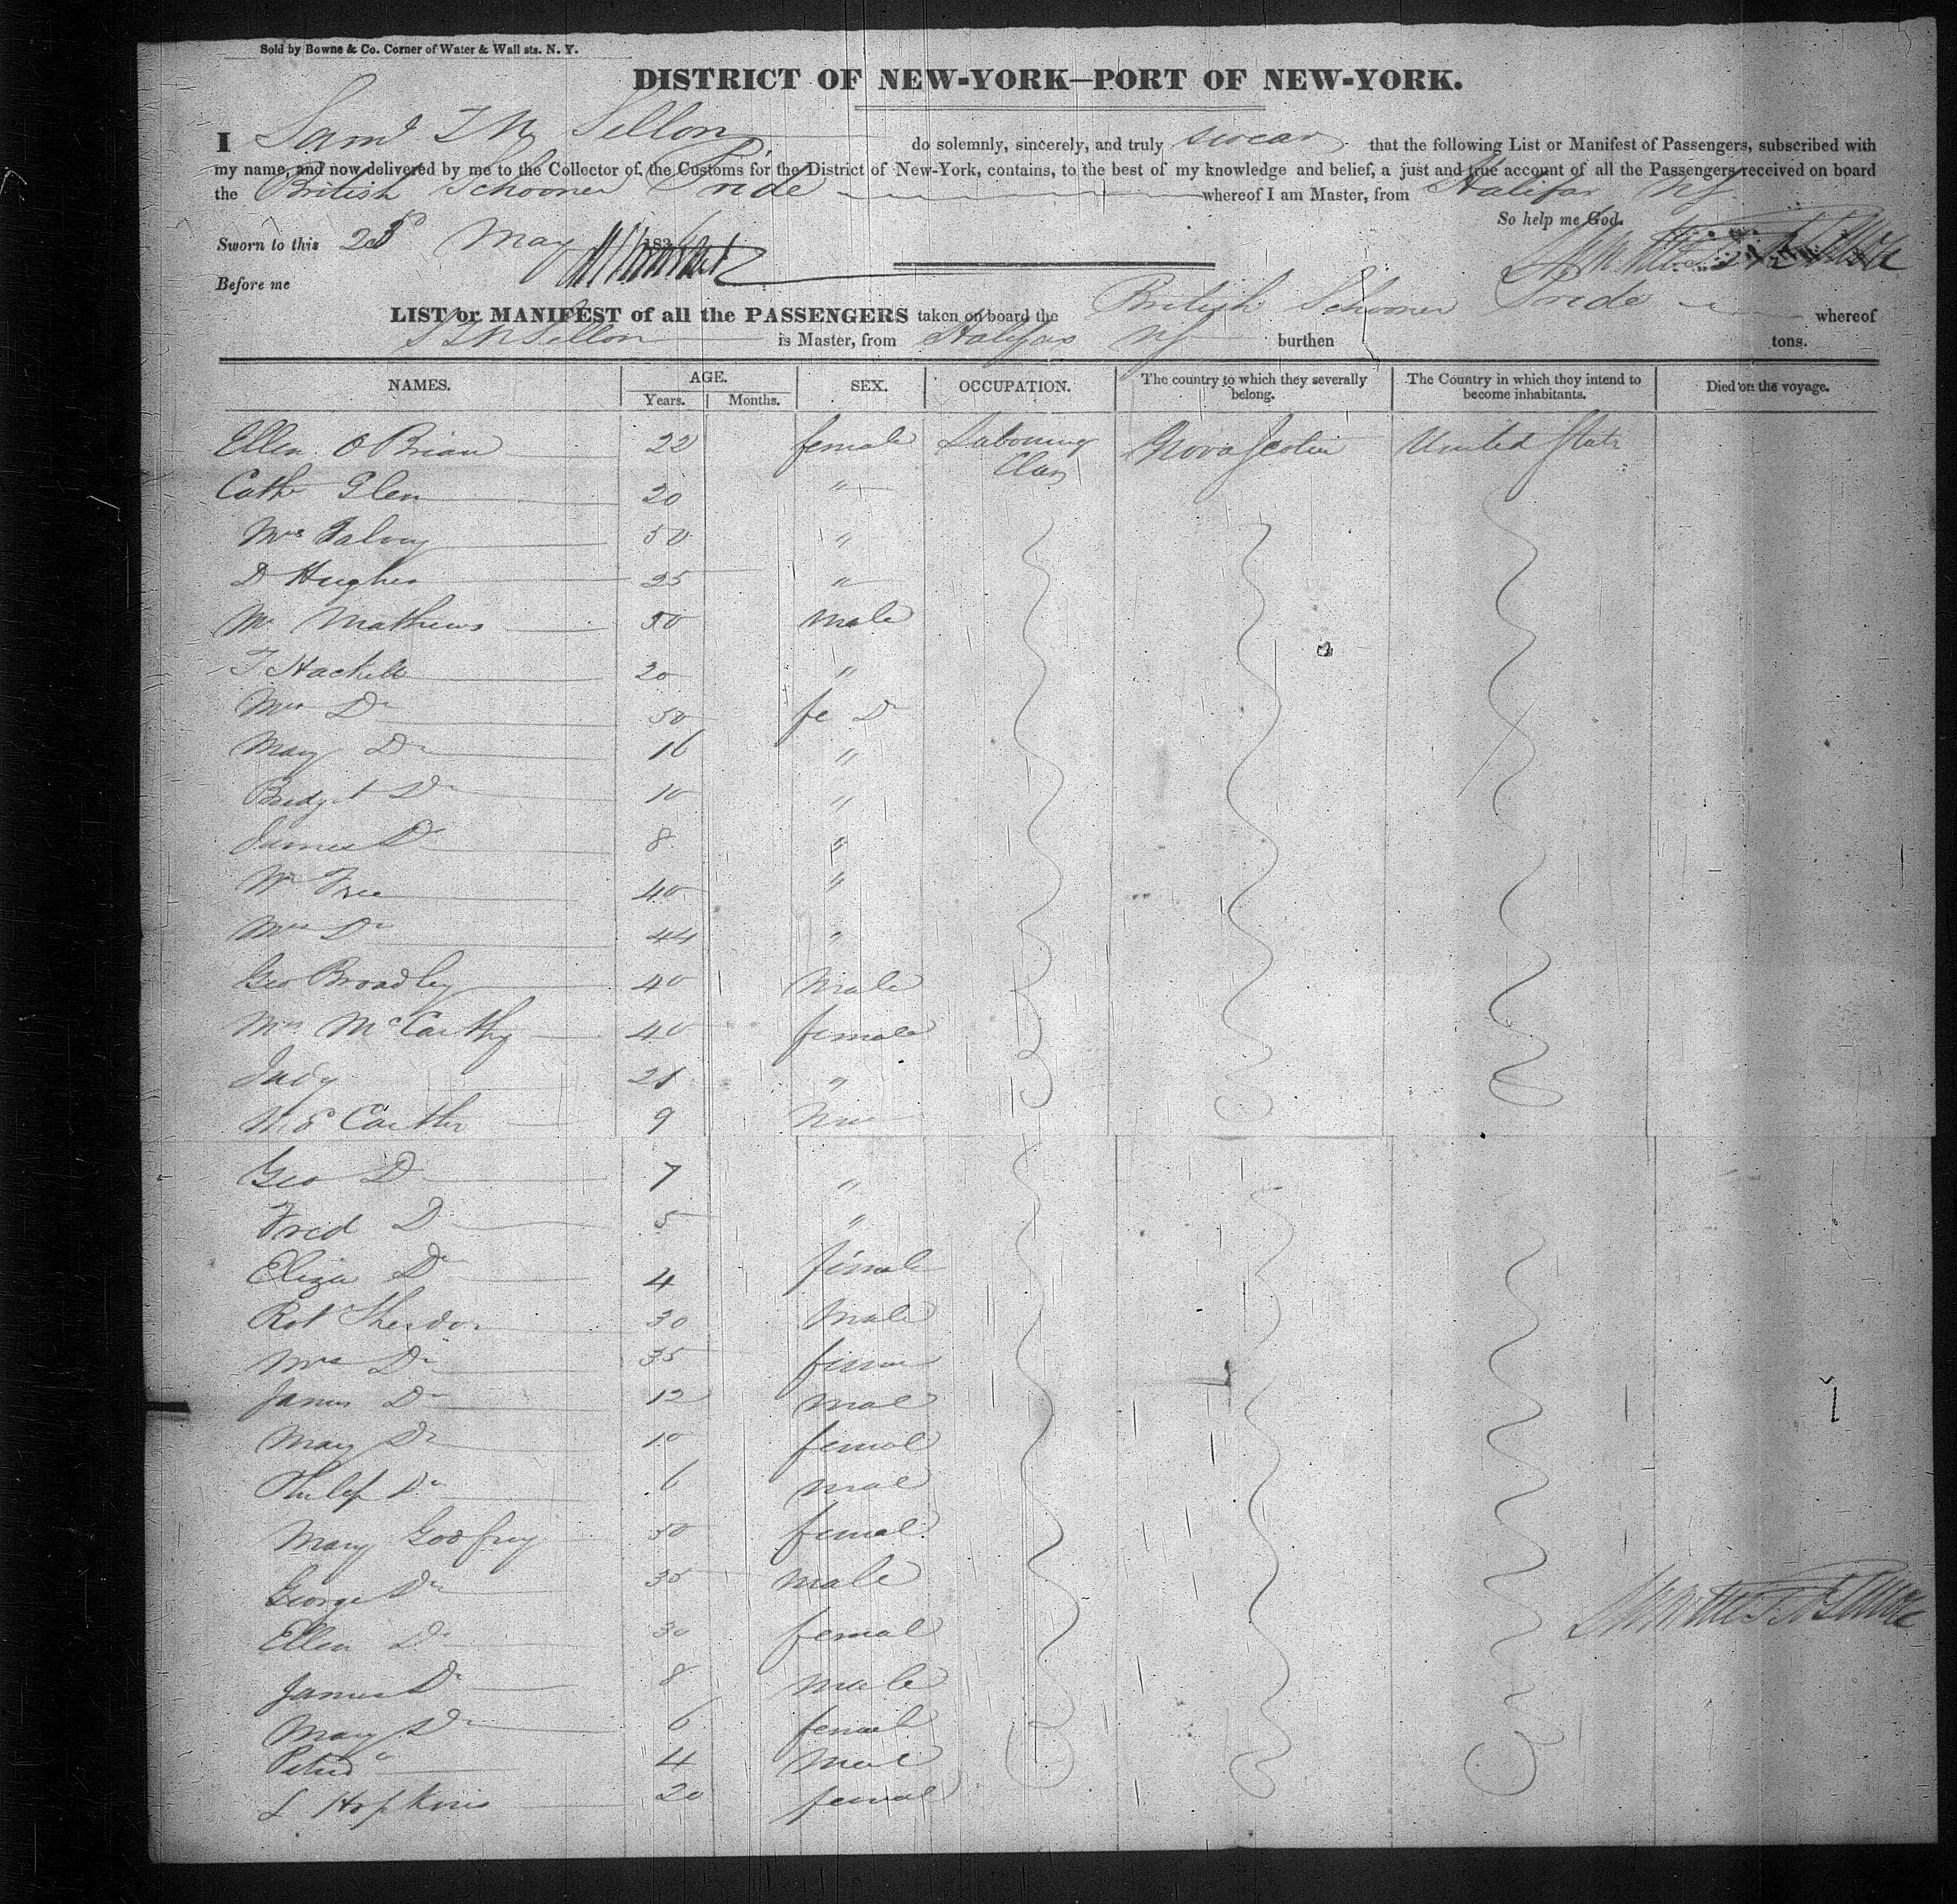 Sold by Bowne & Co. Corner of Water & Wall sts. N. Y.
DISTRICT OF NEW-YORK—PORT OF NEW-YORK.
I Saml do solemnly, sincerely, and truly swear that the following List or Manifest of Passengers, subscribed with
my name, and now delivered by me to the Collector of the Customs for the District of New-York, contains, to the best of my knowledge and belief, a just and true account of all the Passengers received on board
the British Schooner Pride whereof I am Master, from Halifax NS
So help me God.
Sworn to this May 183
Before me
LIST or MANIFEST of all the PASSENGERS taken on board the British Schooner Pride whereof
is Master, from Halifax NS burthen tons.
NAMES. AGE. Years. Months. SEX. OCCUPATION. The country to which they severally belong. The Country in which they intend to become inhabitants. Died on the voyage.
Ellen O Brian 22 female Labouring Class Nova Scotia United State
Cathe Glen 20 "
Mrs 50 "
D Hughes 25 "
Mr Mathews 50 male
T Hackett 20 "
Mrs Do 50 fe Do
Mary Do 16 "
Bridget Do 10 "
James Do 8 "
40 "
Mrs Do 44 "
Geo Broadley 40 Male
Mrs McCarthy 40 female
Judy 21 "
9
Geo D 7 "
Fred D 5 "
Eliza Do 4 female
Robt 30 Male
Mrs Do 35
James Do 12 mal
Mary Do 10 femal
Philip Do 6 mal
Mary Godfrey 50 femal
George Do 35 male
Ellen Do 30 femal
James Do 8 male
Mary Do 6 femal
4 mal
L Hopkins 20 femal